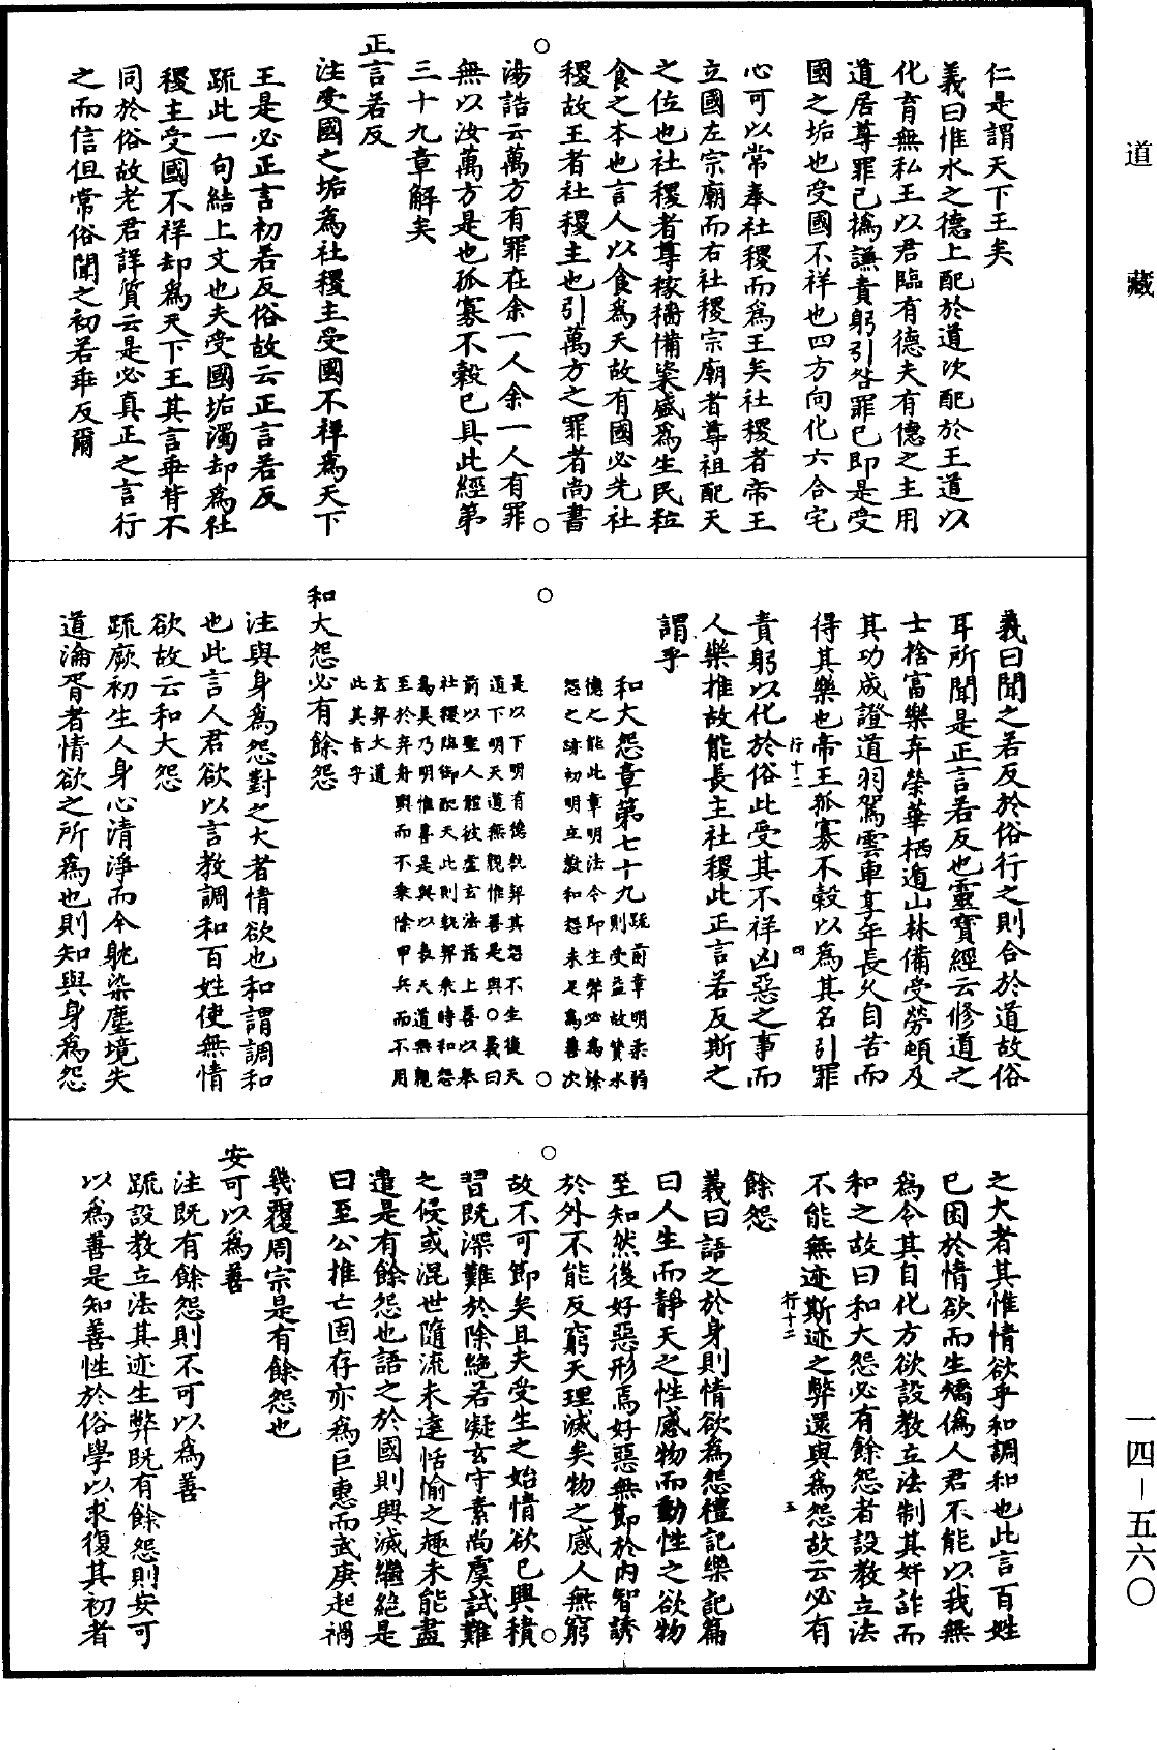 道藏
仁是謂天下王矣
義曰惟水之德上配於道次配於王道以
化育無私王以君臨有德夫有德之主用
道居尊罪己撝謙責躬引咎罪己即是受
國之垢也受國不祥也四方向化六合宅
心可以常奉社稷而為王矣社稷者帝王
立國左宗廟而右社稷宗廟者尊祖配天
之位也社稷者尊稼穡備粢盛為生民粒
食之本也言人以食為天故有國必先社
稷故王者社稷主也引萬方之罪者尚書
湯誥云萬方有罪在余一人余一人有罪
無以汝萬方是也孤寡不穀已具此經第
三十九章解矣
正言若反
注受國之垢為社稷主受國不祥為天下
王是必正言初若反俗故云正言若反
疏此一句結上文也夫受國垢濁却為社
稷主受國不祥却為天下王其言乖背不
同於俗故老君詳質云是必真正之言行
之而信但常俗聞之初若乖反爾
義曰聞之若反於俗行之則合於道故俗
耳所聞是正言若反也靈寶經云修道之
士捨富樂弃榮華栖遁山林備受勞頓及
其功成證道羽駕雲車享年長久自苦而
得其樂也帝王孤寡不穀以為其名引罪
行十二
四
責躬以化於俗此受其不祥凶惡之事而
人樂推故能長主社稷此正言若反斯之
謂乎
和大怨章第七十九
疏前章明柔弱
則受益故贊水
德之能此章明法令即生弊必為餘
怨之跡初明立教和怨未足為善次
是以下明有德執契其怨不生後天
道下明天道無親惟善是與○義曰
前以聖人體彼虛玄法諸上善以奉
社稷臨御配天此則執契乘時和怨
為美乃明惟善是與以表天道無親
至於弃舟輿而不乘除甲兵而不用
玄契大道
此其旨乎
和大怨必有餘怨
注與身為怨對之大者情欲也和謂調和
也此言人君欲以言教調和百姓使無情
欲故云和大怨
疏厥初生人身心清淨而今躭染塵境失
道淪胥者情欲之所為也則知與身為怨
之大者其惟情欲乎和調和也此言百姓
已困於情欲而生矯偽人君不能以我無
為令其自化方欲設教立法制其奸詐而
和之故曰和大怨必有餘怨者設教立法
不能無迹斯迹之弊還與為怨故云必有
行十二
五
餘怨
義曰語之於身則情欲為怨禮記樂記篇
曰人生而靜天之性感物而動性之欲物
至知然後好惡形焉好惡無節於內智誘
於外不能反窮天理滅矣物之感人無窮
故不可節矣且夫受生之始情欲已興積
習既深難於除絕若凝玄守素尚虞試難
之侵或混世隨流未達恬愉之趣未能盡
遣是有餘怨也語之於國則興滅繼絕是
曰至公推亡固存亦為巨惠而武庚起禍
幾覆周宗是有餘怨也
安可以為善
注既有餘怨則不可以為善
疏設教立法其迹生弊既有餘怨則安可
以為善是知善性於俗學以求復其初者
一四—五六〇